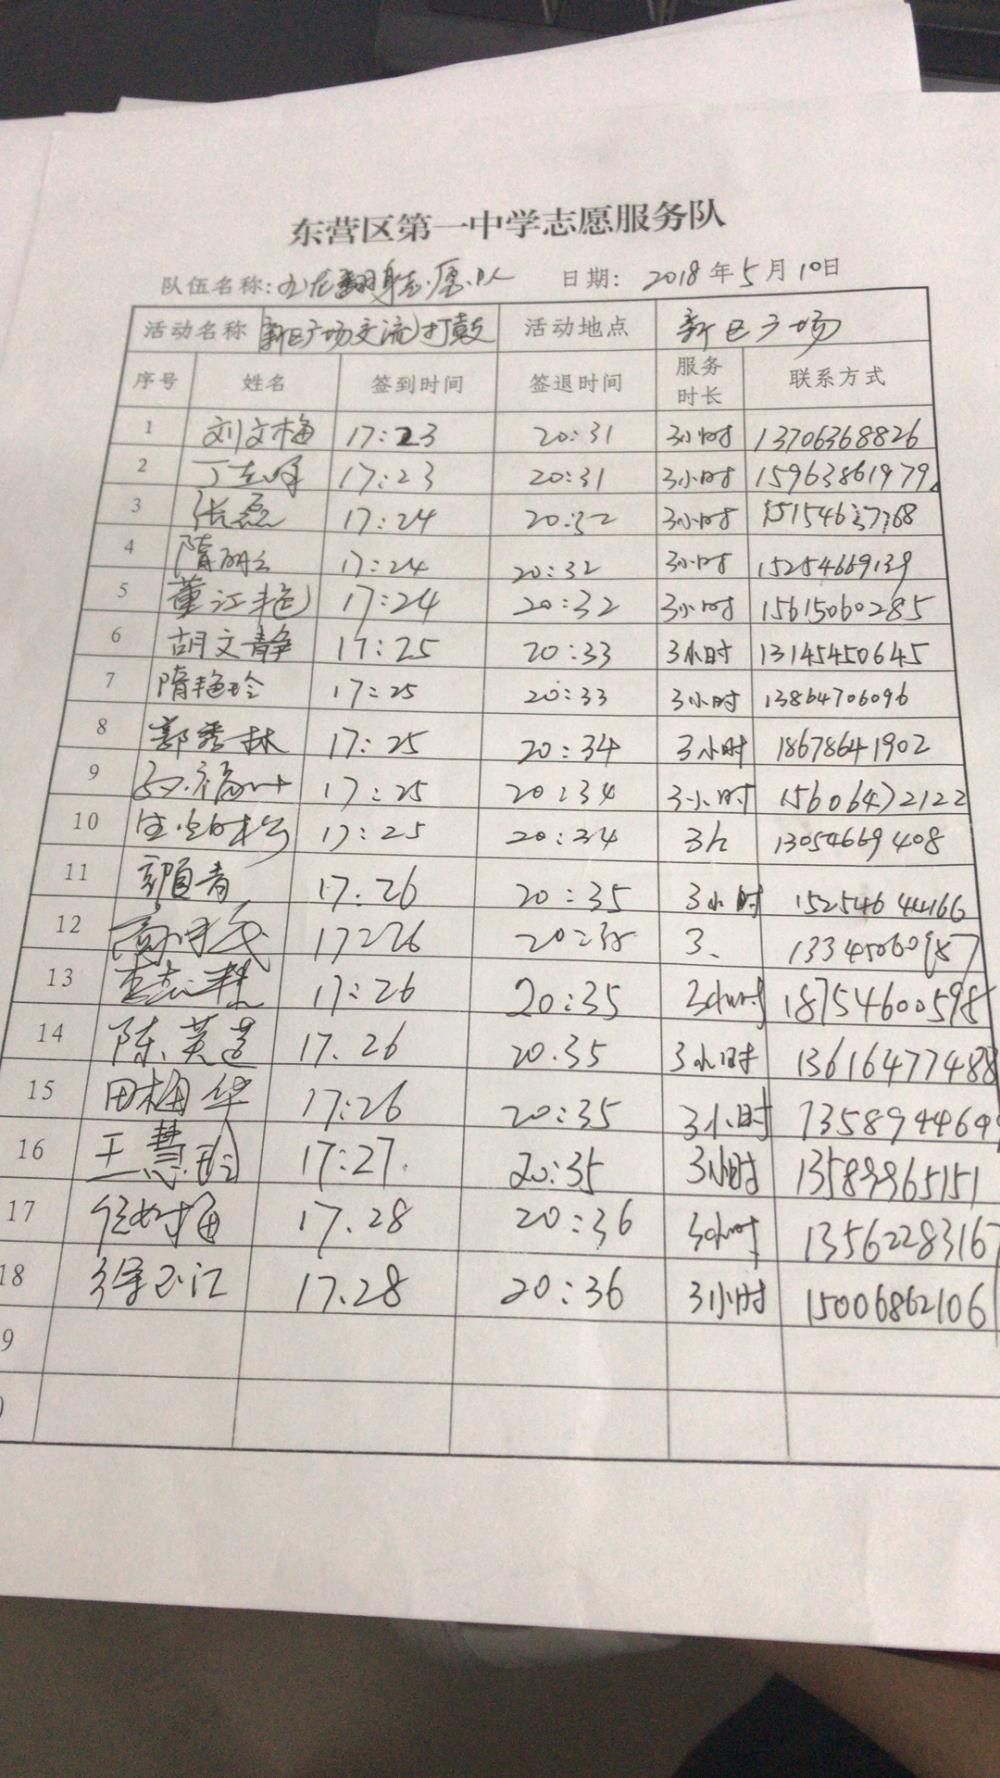 东营区第一中学志愿服务队
队伍名称: 志愿队 日期: 2018年5月10日
活动名称 新区广场交流打鼓 活动地点 新区广场
序号 姓名 签到时间 签退时间 服务时长 联系方式
1 刘文梅 17:23 20:31 3小时 13706368826
2 17:23 20:31 3小时 15963861979
3 张磊 17:24 20:32 3小时 15154637768
4 17:24 20:32 3小时 15254669139
5 董江艳 17:24 20:32 3小时 15615060285
6 胡文静 17:25 20:33 3小时 13145450645
7 隋艳玲 17:25 20:33 3小时 13864706096
8 郭秀林 17:25 20:34 3小时 18678641902
9 17:25 20:34 3小时 15606472122
10 17:25 20:34 3h 13054669408
11 17.26 20:35 3小时 15254644166
12 17:26 20:35 3、
13 17:26 20:35 3小时 18754600598
14 陈英 17.26 20.35 3小时 13616477488
15 田梅华 17:26 20:35 3小时
16 王慧玲 17:27. 20:35 3小时 13589965151
17 17.28 20:36 3小时 13562283167
18 徐玉江 17.28 20:36 3小时 15006862106
9